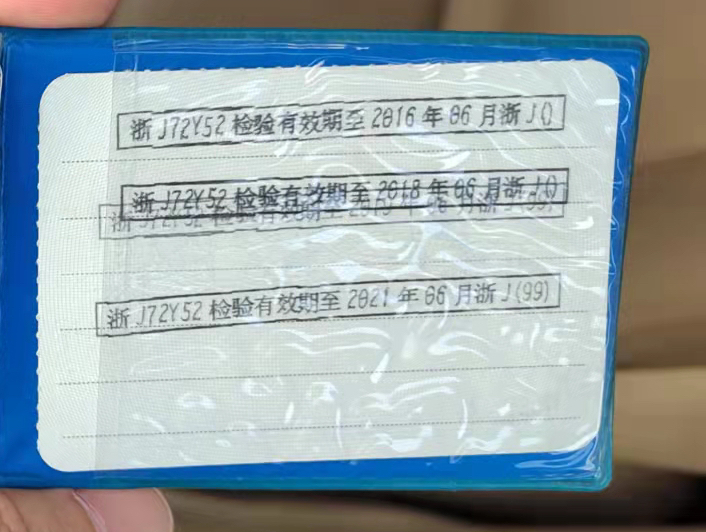 浙J72Y52检验有效期至2016年06月浙J()
浙J72Y52检验有效期至2018年06月浙J()
浙J72Y52检验有效期至2019年06月浙J(99)
浙J72Y52检验有效期至2021年06月浙J(99)